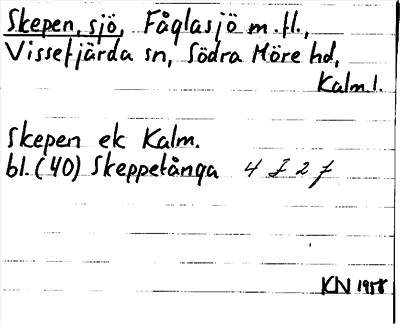 Skepen, sjö, Fåglasjö m.fl.,
Vissefjärda sn, Södra Möre hd,
Kalm.l.
Skepen ek Kalm.
bl. (40) Skeppetånga 4 I 2 f
KN 1958